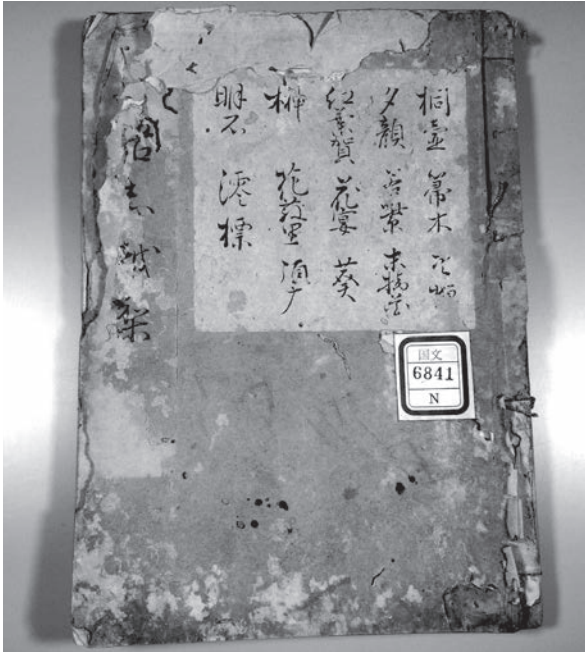 桐壺 箒木 空蝉
夕顔 若紫 末摘花
紅葉賀 花宴 葵
榊 花散里 須磨
明石 澪標
国文
6841
N